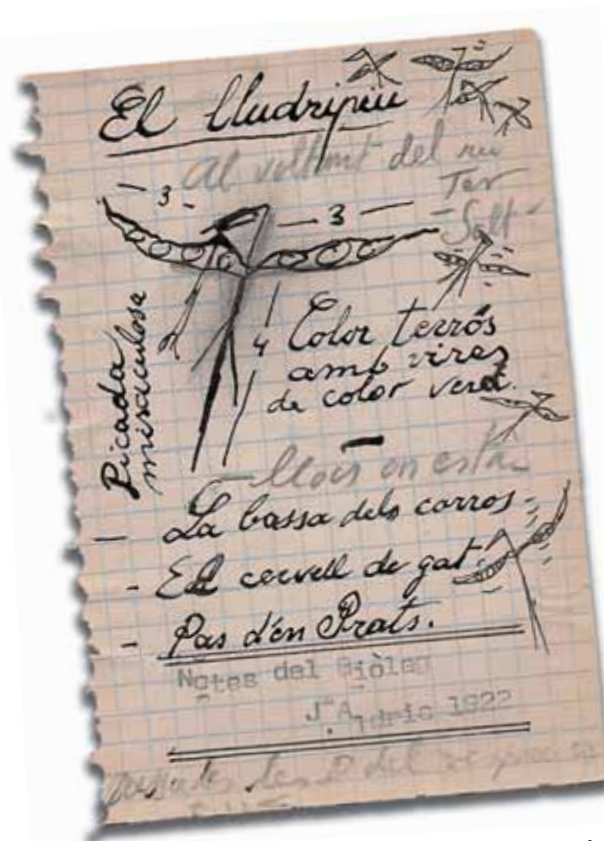 El Lludripiu
Al voltant del riu
Ter
- Salt -
- 3 -
- 3 -
4
Picada
miraculosa
Color terrós
amb vires
de color verd.
- llocs on està
- La bassa dels carros -
- El cervell de gat
- Pas d'en Prats.
Notes del Biòleg
1922